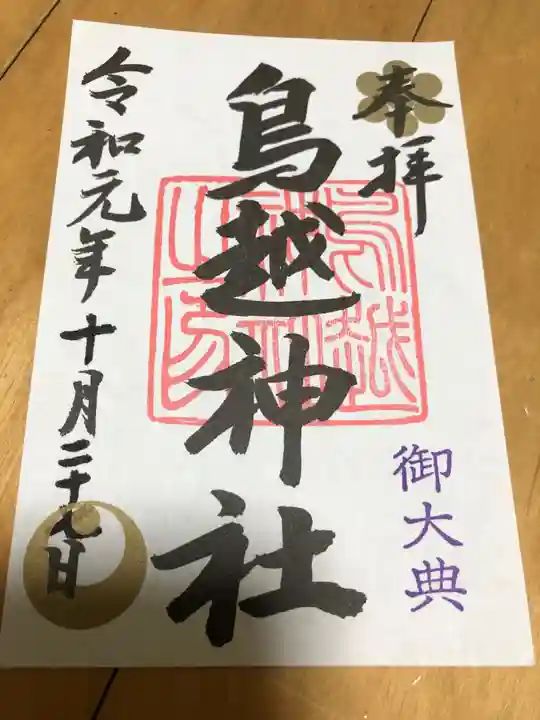 奉拝
鳥越神社
鳥越神社之印
御大典
令和元年十月二十九日